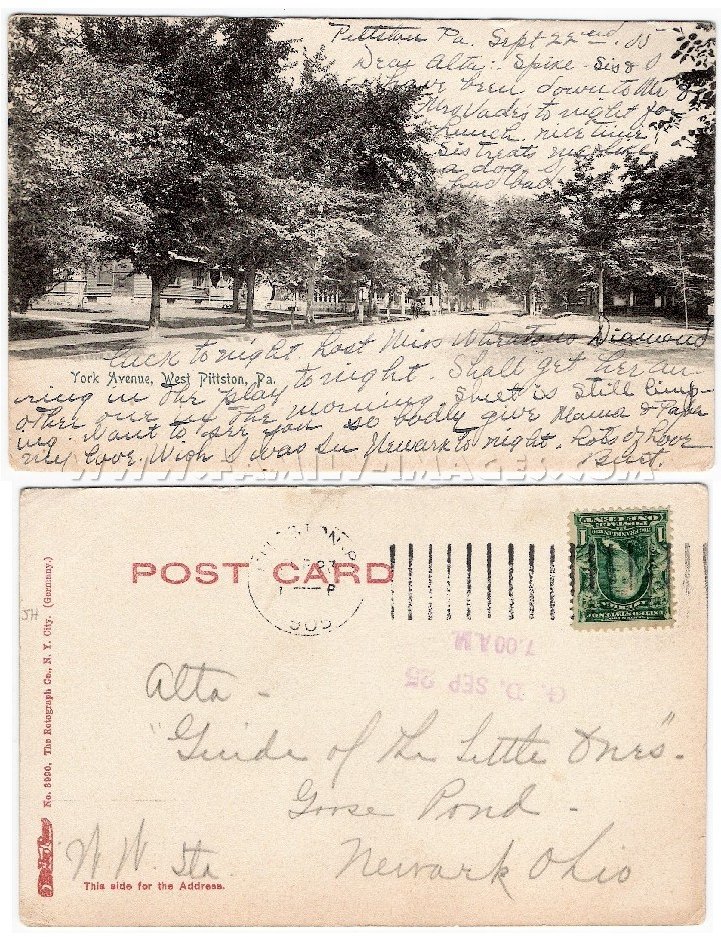 Pittston Pa. Sept 22nd. 05
Dear Alta: Spike Sis & I
have been down to Mr &
Mrs Wade's to night for
lunch. nice time,
Sis treats me like
a dog. 
has bad
luck to night lost Miss Wheatons Diamond
York Avenue, West Pittston, Pa.
ring in the play to night. Shall get her an-
other one in the morning. is still limp-
ing. Want to see you so badly give Mama &
my love. Wish I was in Newark to night. Lots of Love
Burt.
WWW.FAMILY-IMAGES.COM
POST CARD
905
7.00 A.M.
G. D. SEP 25
JH
No. 3990, The Rotograph Co., N. Y. City. (Germany.)
Alta -
"Guide of the Little Ones".
Goose Pond -
W W. Sta.
Newark Ohio
This side for the Address.